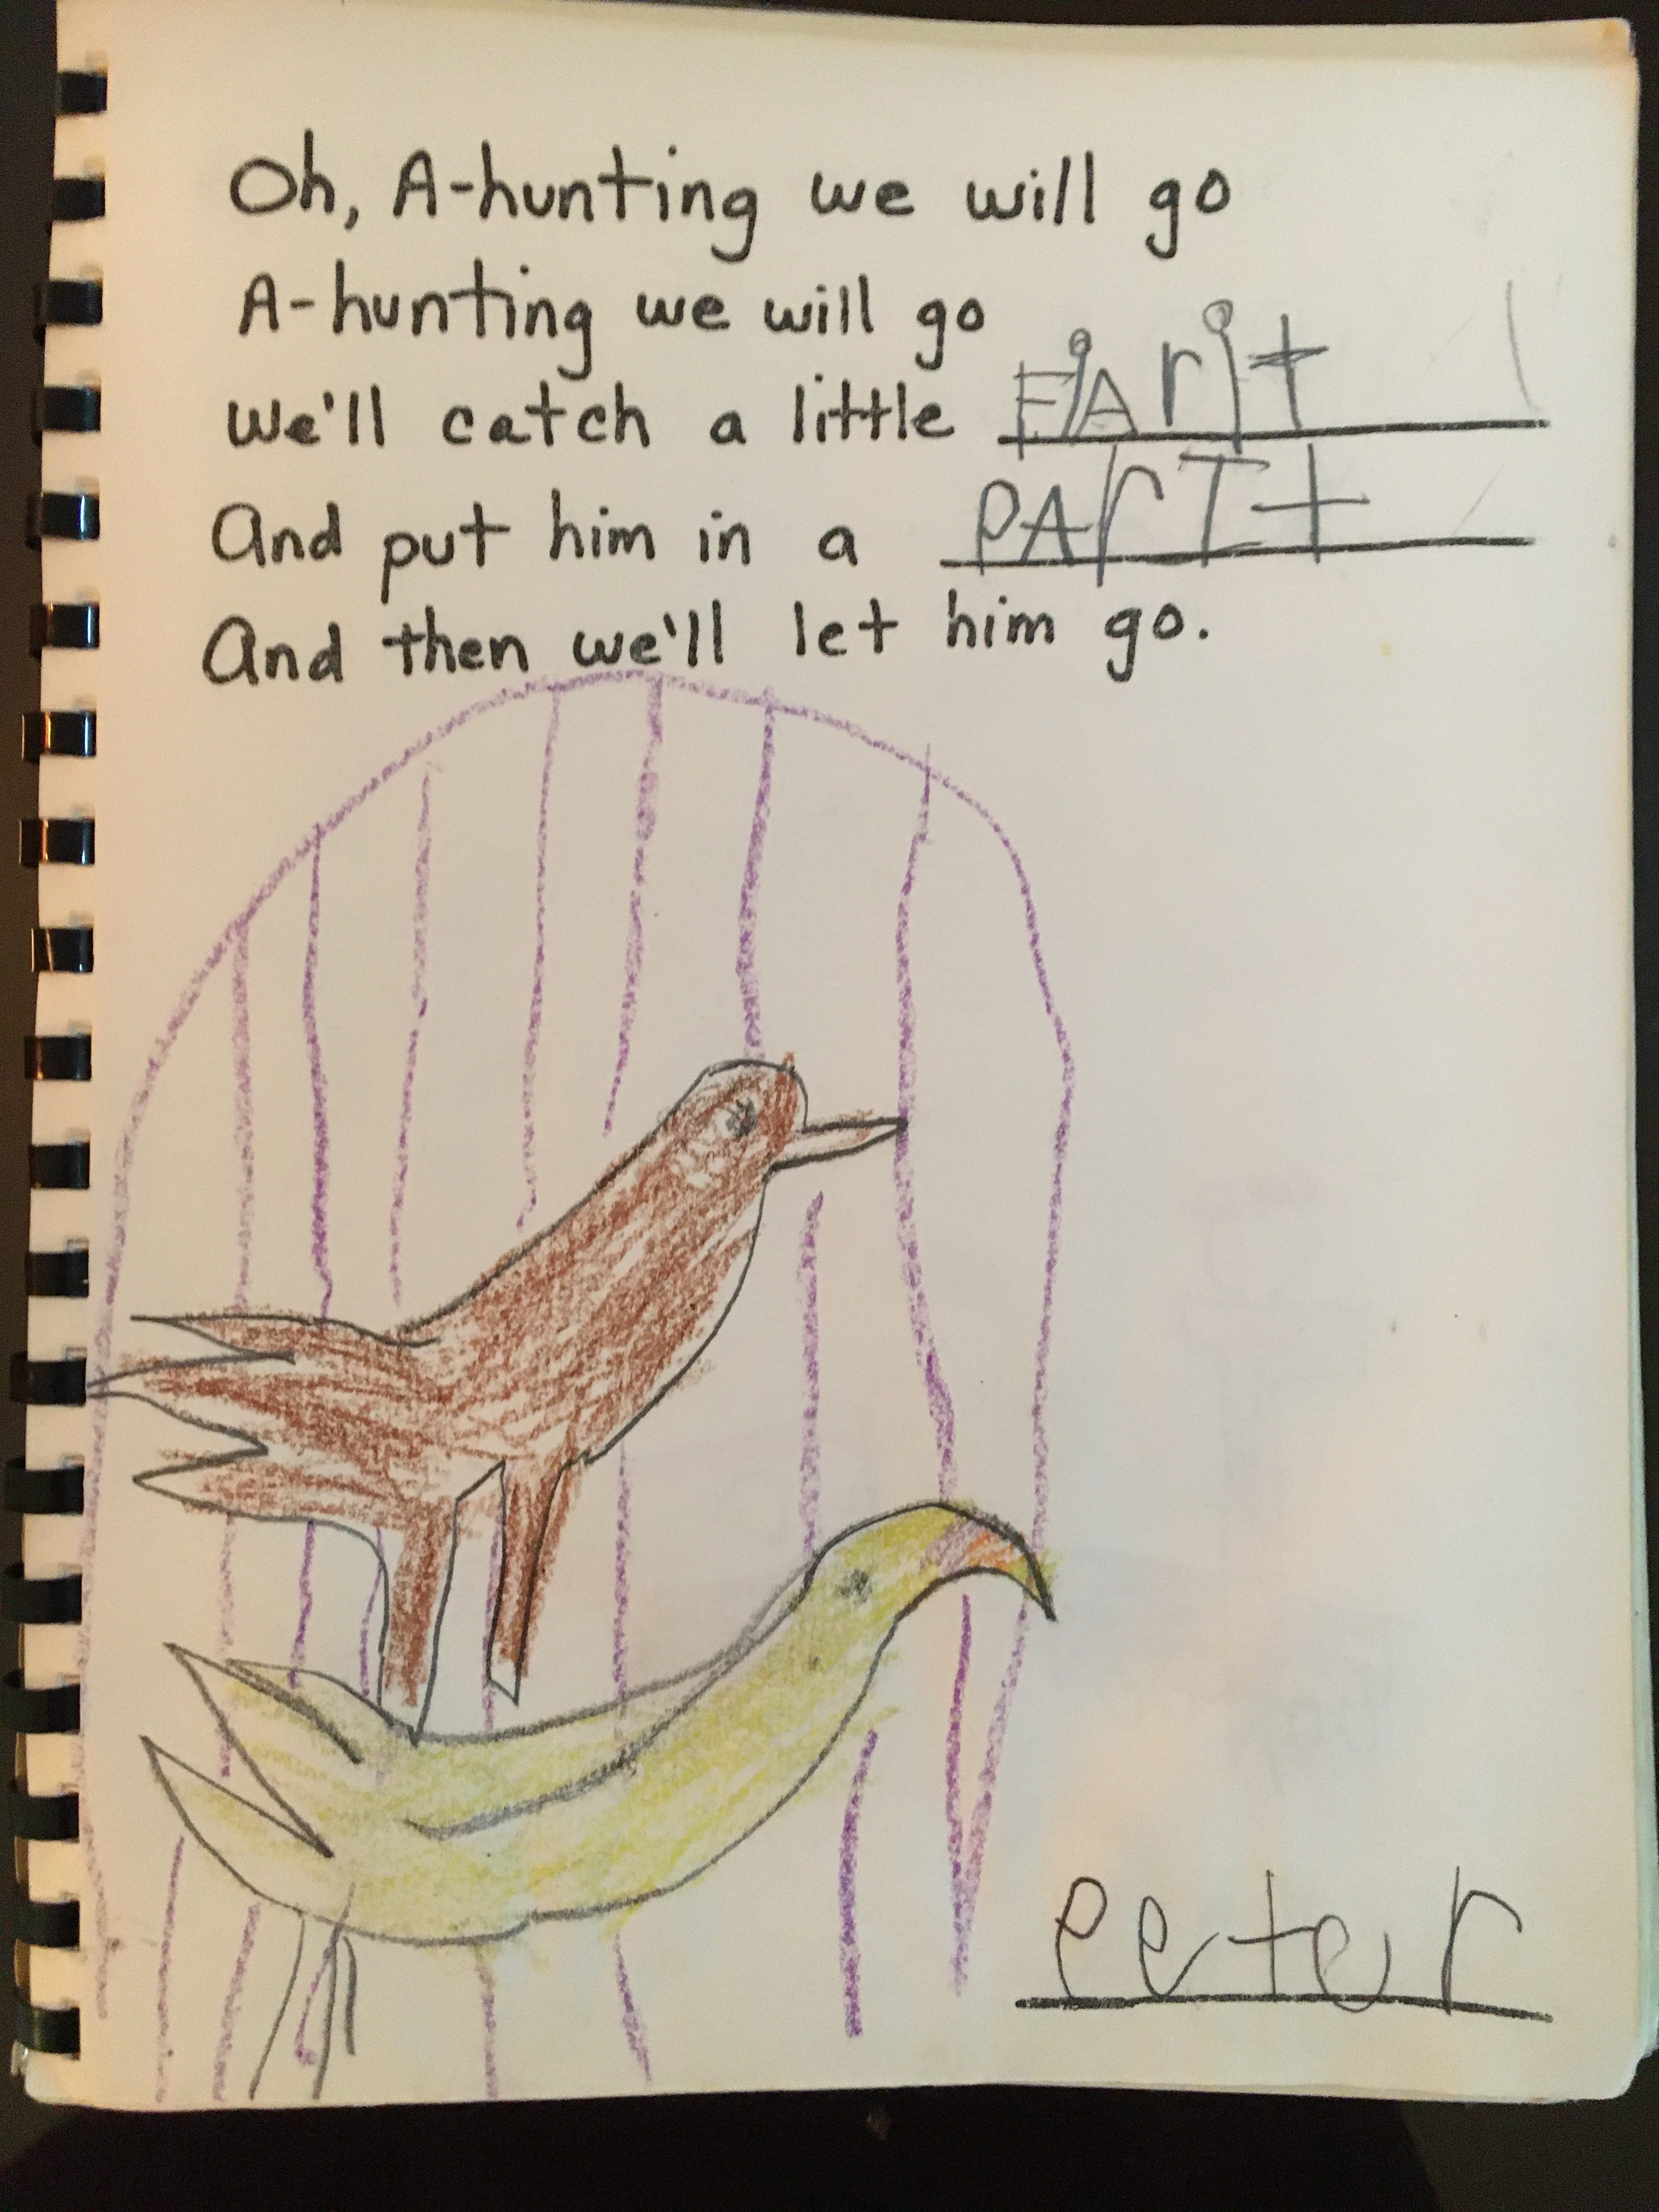 Oh, A-hunting we will go
A-hunting we will go
we'll catch a little FiArit
And put him in a PArIt
And then we'll let him go.
eeter